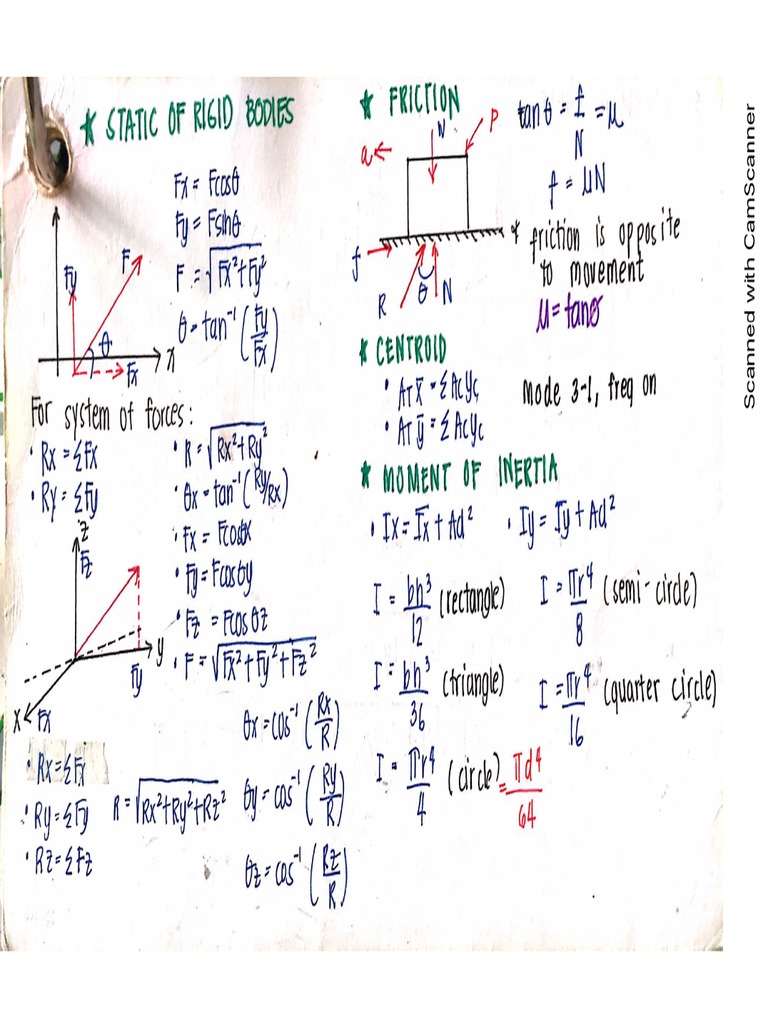 ★ STATIC OF RIGID BODIES
Fx = Fcosθ
Fy = Fsinθ
F = √Fx²+Fy²
θ = tan⁻¹ (Fy/Fx)
Fy
F
θ
Fx
x
For system of forces:
• Rx = ΣFx
• Ry = ΣFy
• R = √Rx²+Ry²
• θx = tan⁻¹ (Ry/Rx)
• Fx = Fcosθx
• Fy = Fcosθy
• Fz = Fcosθz
• F = √Fx²+Fy²+Fz²
z
Fz
y
Fy
x
Fx
θx = cos⁻¹ (Rx/R)
• Rx = ΣFx
• Ry = ΣFy
• Rz = ΣFz
R = √Rx²+Ry²+Rz²
θy = cos⁻¹ (Ry/R)
θz = cos⁻¹ (Rz/R)
★ FRICTION
a
W
P
f
R
θ
N
tanθ = f/N = μ
f = μN
* friction is opposite
to movement
μ = tanθ
★ CENTROID
• AT x̄ = ΣAcyc
• AT ȳ = ΣAcyc
Mode 3-1, freq on
★ MOMENT OF INERTIA
• Ix = I̅x + Ad²
• Iy = I̅y + Ad²
I = bh³/12 (rectangle)
I = πr⁴/8 (semi-circle)
I = bh³/36 (triangle)
I = πr⁴/16 (quarter circle)
I = πr⁴/4 (circle) = πd⁴/64
Scanned with CamScanner